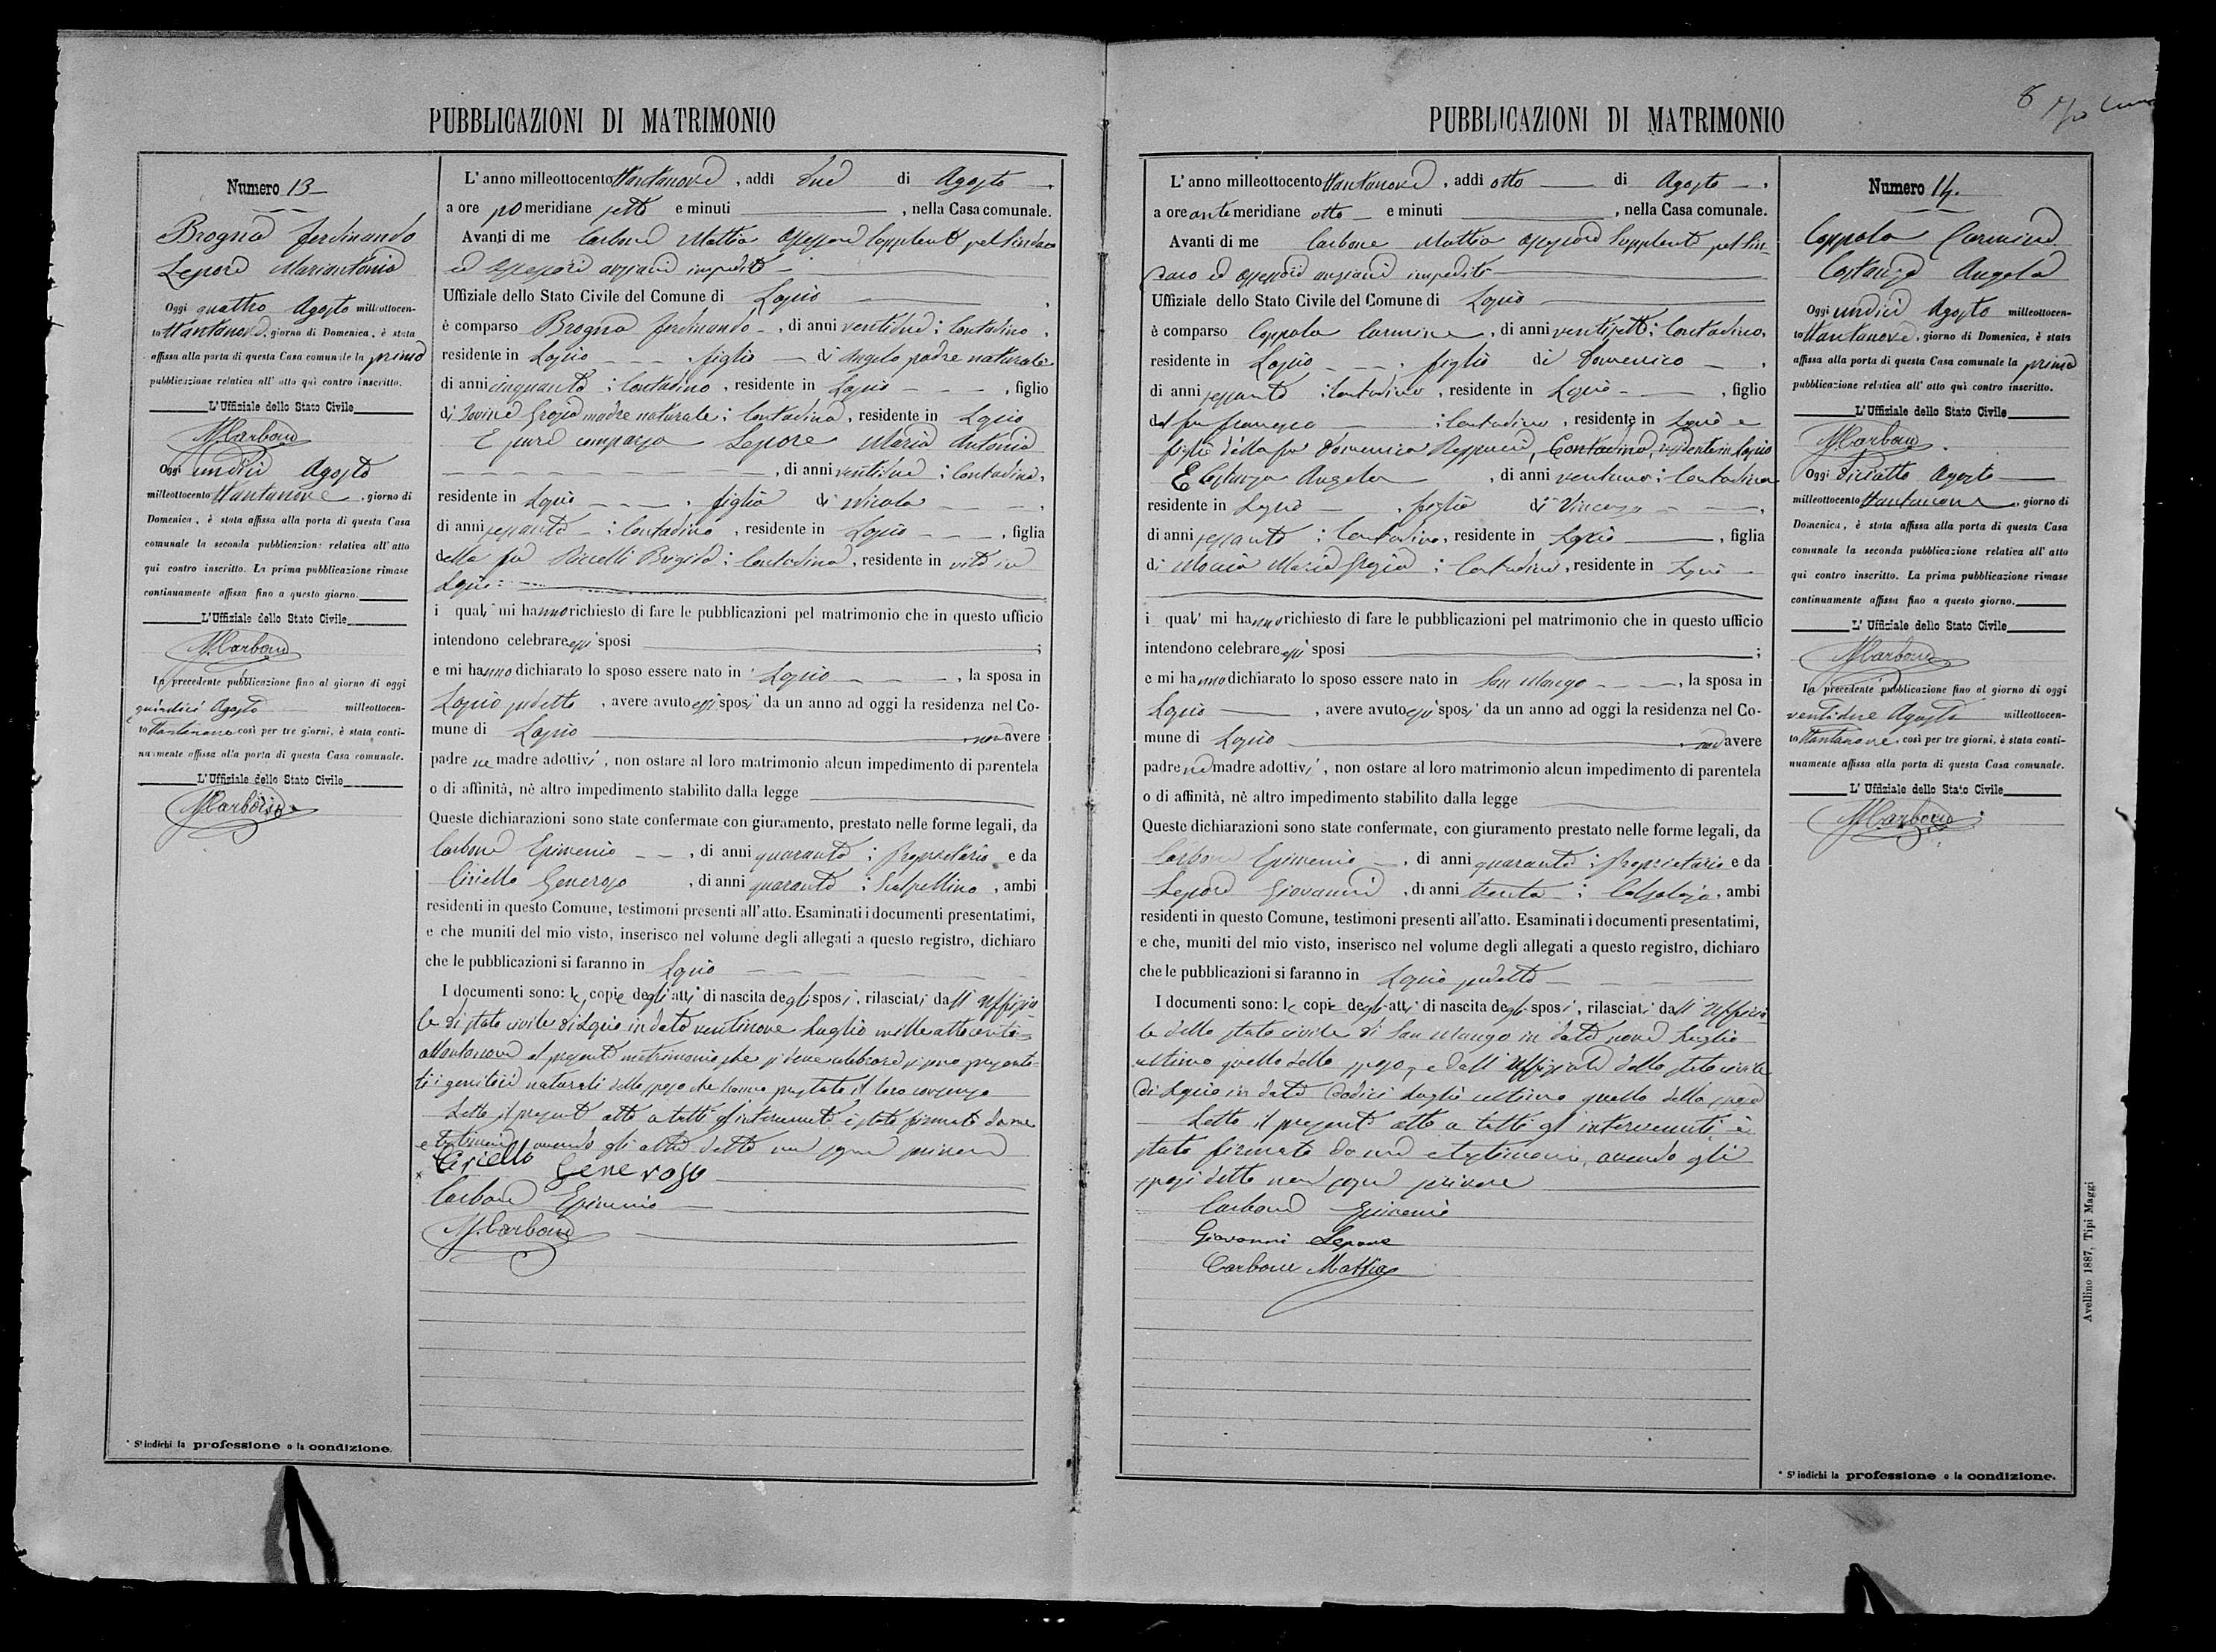 PUBBLICAZIONI DI MATRIMONIO
Numero 13
Brogna Ferdinando
Lepore Mariantonia
Oggi quattro Agosto milleottocen-
to ottantanove, giorno di Domenica, è stata
affissa alla porta di questa Casa comunale la prima
pubblicazione relativa all' atto quì contro inscritto.
L'Uffiziale dello Stato Civile
M. Carbone
Oggi undici Agosto
milleottocento ottantanove, giorno di
Domenica, è stata affissa alla porta di questa Casa
comunale la seconda pubblicazione relativa all' atto
qui contro inscritto. La prima pubblicazione rimase
continuamente affissa fino a questo giorno.
L'Uffiziale dello Stato Civile
M. Carbone
La precedente pubblicazione fino al giorno di oggi
quindici Agosto milleottocen-
to ottantanove così per tre giorni, è stata conti-
nuamente affissa alla porta di questa Casa comunale.
L'Uffiziale dello Stato Civile
M. Carbone
* S'indichi la professione o la condizione.
L' anno milleottocento ottantanove, addì due di Agosto,
a ore pomeridiane sette e minuti , nella Casa comunale.
Avanti di me Carbone Mattia Assessore Supplente pel Sindaco
ed Assessori anziani impediti
Uffiziale dello Stato Civile del Comune di Lapio,
è comparso Brogna Ferdinando, di anni ventidue; Contadino,
residente in Lapio, figlio di Angelo padre naturale
di anni cinquanta; Contadino, residente in Lapio, figlio
di Iovine Grazia madre naturale; Contadina, residente in Lapio
E pure comparsa Lepore Maria Antonia
, di anni ventidue; Contadina,
residente in Lapio, figlia di Nicola,
di anni sessanta; Contadino, residente in Lapio, figlia
della fu Brigida; Contadina, residente in vita in
Lapio
i quali mi hanno richiesto di fare le pubblicazioni pel matrimonio che in questo ufficio
intendono celebrare essi sposi ;
e mi hanno dichiarato lo sposo essere nato in Lapio, la sposa in
Lapio sudetto, avere avuto essi sposi da un anno ad oggi la residenza nel Co-
mune di Lapio, non avere
padre ne madre adottivi, non ostare al loro matrimonio alcun impedimento di parentela
o di affinità, nè altro impedimento stabilito dalla legge
Queste dichiarazioni sono state confermate con giuramento, prestato nelle forme legali, da
Carbone Epimenio, di anni quaranta; Proprietario e da
Ciriello Generoso, di anni quaranta; Scalpellino, ambi
residenti in questo Comune, testimoni presenti all'atto. Esaminati i documenti presentatimi,
e che muniti del mio visto, inserisco nel volume degli allegati a questo registro, dichiaro
che le pubblicazioni si faranno in Lapio
I documenti sono: le copie degli atti di nascita degli sposi, rilasciati dall' Uffizia-
le di stato civile di Lapio in data ventinove Luglio milleottocento
ottantanove al presente matrimonio che si deve celebrare si sono presenta-
ti i genitori naturali dello sposo che hanno prestato il loro consenso
Letto il presente atto a tutti gl'intervenuti è stato firmato da me
e testimoni avendo gli altri detto non saper scrivere
Ciriello Generoso
Carbone Epimenio
M. Carbone
PUBBLICAZIONI DI MATRIMONIO
8
L' anno milleottocento ottantanove, addì otto di Agosto,
a ore antemeridiane otto e minuti , nella Casa comunale.
Avanti di me Carbone Mattia Assessore Supplente pel Sin-
daco ed Assessori anziani impediti
Uffiziale dello Stato Civile del Comune di Lapio
è comparso Coppola Carmine, di anni ventisette; Contadino,
residente in Lapio, figlio di Domenico,
di anni sessanta; Contadino, residente in Lapio, figlio
del fu Francesco; Contadino, residente in Lapio e
figlio della fu Domenica, Contadina, residente in Lapio
E Costanza Angela, di anni ventuno; Contadina
residente in Lapio, figlia di Vincenzo,
di anni sessanta; Contadino, residente in Lapio, figlia
di Maria Grazia; Contadina, residente in Lapio
i quali mi hanno richiesto di fare le pubblicazioni pel matrimonio che in questo ufficio
intendono celebrare essi sposi ;
e mi hanno dichiarato lo sposo essere nato in San Mango, la sposa in
Lapio, avere avuto essi sposi da un anno ad oggi la residenza nel Co-
mune di Lapio, non avere
padre nè madre adottivi, non ostare al loro matrimonio alcun impedimento di parentela
o di affinità, nè altro impedimento stabilito dalla legge
Queste dichiarazioni sono state confermate, con giuramento prestato nelle forme legali, da
Carbone Epimenio, di anni quaranta; Proprietario e da
Lepore Giovanni, di anni trenta; Calzolajo, ambi
residenti in questo Comune, testimoni presenti all'atto. Esaminati i documenti presentatimi,
e che, muniti del mio visto, inserisco nel volume degli allegati a questo registro, dichiaro
che le pubblicazioni si faranno in Lapio sudetto
I documenti sono: le copie degli atti di nascita degli sposi, rilasciati dall' Uffizia-
le dello stato civile di San Mango in data nove Luglio
ultimo quello dello sposo, e dall' Uffiziale dello stato civile
di Lapio in data dodici Luglio ultimo quello della sposa
Letto il presente atto a tutti gl' intervenuti è
stato firmato da me e testimoni, avendo gli
sposi detto non saper scrivere
Carbone Epimenio
Giovanni Lepore
Carbone Mattia
Numero 14.
Coppola Carmine
Costanza Angela
Oggi undici Agosto milleottocen-
to ottantanove, giorno di Domenica, è stata
affissa alla porta di questa Casa comunale la prima
pubblicazione relativa all' atto quì contro inscritto.
L'Uffiziale dello Stato Civile
M. Carbone
Oggi diciotto Agosto
milleottocento ottantanove, giorno di
Domenica, è stata affissa alla porta di questa Casa
comunale la seconda pubblicazione relativa all' atto
qui contro inscritto. La prima pubblicazione rimase
continuamente affissa fino a questo giorno.
L' Uffiziale dello Stato Civile
M. Carbone
La precedente pubblicazione fino al giorno di oggi
ventidue Agosto milleottocen-
to ottantanove, così per tre giorni, è stata conti-
nuamente affissa alla porta di questa Casa comunale.
L' Uffiziale dello Stato Civile
M. Carbone
* S'indichi la professione o la condizione.
Avellino 1887, Tipi Maggi